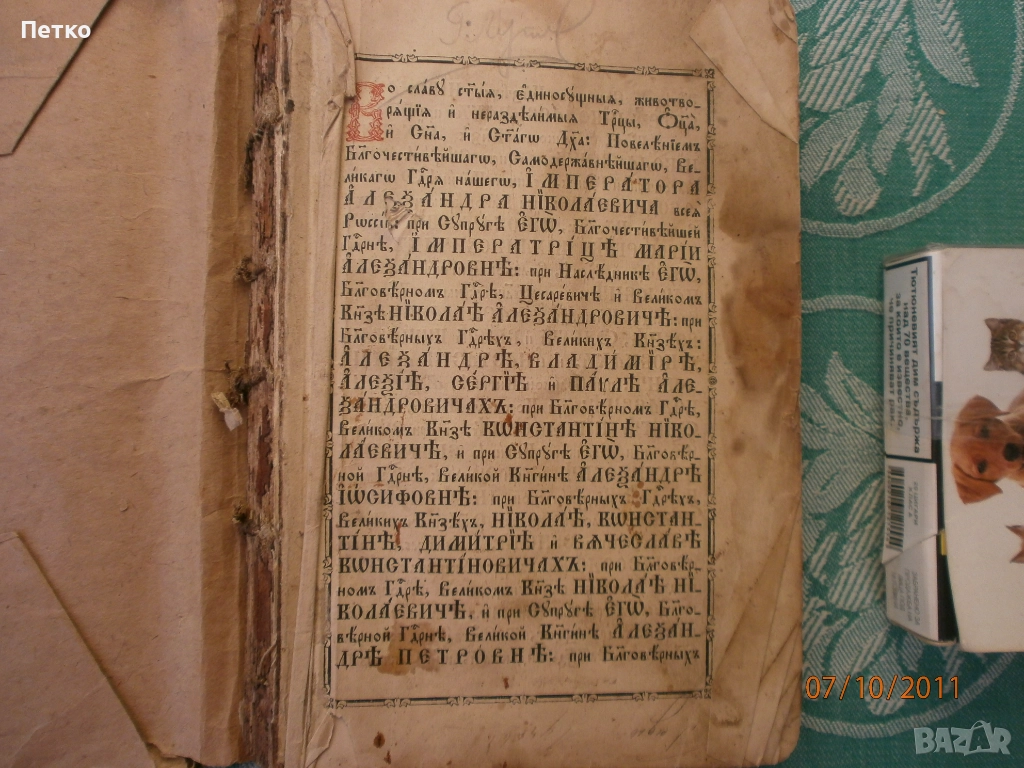 Петко
Во славу ст҃ы́ѧ, є҆диносу́щныѧ, животво-
рѧ́щїѧ и҆ нераздѣ́лимыѧ Трⷪ҇цы, Ѻ҆ц҃а̀,
и҆ Сн҃а, и҆ Ст҃а́гѡ Дх҃а: Повелѣ́нїемъ
Бл҃гочести́вѣйшагѡ, Самодержа́внѣйшагѡ, Ве-
ли́кагѡ Гдⷭ҇рѧ на́шегѡ, І҆МПЕРА́ТОРА
А҆ЛЕѮА́НДРА НІКОЛА́ЕВИЧА всеѧ̀
Рѡссі́и: при Сꙋпрꙋ́гѣ Є҆ГѠ̀, Бл҃гочести́вѣйшей
Гдⷭ҇рнѣ, І҆МПЕРАТРІ́ЦѢ МАРІ́И
А҆ЛЕѮА́НДРОВНѢ: при Наслѣ́дникѣ Є҆ГѠ̀,
Бл҃говѣ́рномъ Гдⷭ҇рѣ, Цесаре́вичѣ и҆ Вели́комъ
Кн҃зѣ НІКОЛА́Ѣ А҆ЛЕѮА́НДРОВИЧѢ: при
Бл҃говѣ́рныхъ Гдⷭ҇рѣхъ, Вели́кихъ Кн҃зѣхъ:
А҆ЛЕѮА́НДРѢ, ВЛАДИ́МІРѢ,
А҆ЛЕѮІ́Ѣ, СЕ́РГІѢ и҆ ПА́ѴЛѢ А҆ЛЕ-
ѮА́НДРОВИЧАХЪ: при Бл҃говѣ́рномъ Гдⷭ҇рѣ,
Вели́комъ Кн҃зѣ КѠНСТАНТІ́НѢ НІКО-
ЛА́ЕВИЧѢ, и҆ при Сꙋпрꙋ́гѣ Є҆ГѠ̀, Бл҃говѣ́р-
ной Гдⷭ҇рнѣ, Вели́кой Кнѧги́нѣ А҆ЛЕѮА́НДРѢ
І҆Ѡ́СИФОВНѢ: при Бл҃говѣ́рныхъ Гдⷭ҇рѣхъ,
Вели́кихъ Кн҃зѣхъ, НІКОЛА́Ѣ, КѠНСТАН-
ТІ́НѢ, ДИМИ́ТРІѢ и҆ ВѦЧЕСЛА́ВѢ
КѠНСТАНТІ́НОВИЧАХЪ: при Бл҃говѣ́р-
номъ Гдⷭ҇рѣ, Вели́комъ Кн҃зѣ НІКОЛА́Ѣ НІ-
КОЛА́ЕВИЧѢ, и҆ при Сꙋпрꙋ́гѣ Є҆ГѠ̀, Бл҃го-
вѣ́рной Гдⷭ҇рнѣ, Вели́кой Кнѧги́нѣ А҆ЛЕѮА́Н-
ДРѢ ПЕТРО́ВНѢ: при Бл҃говѣ́рныхъ
Тютюневият дим съдържа
над 70 вещества,
за които е известно,
че причиняват рак.
07/10/2011
BAZAR